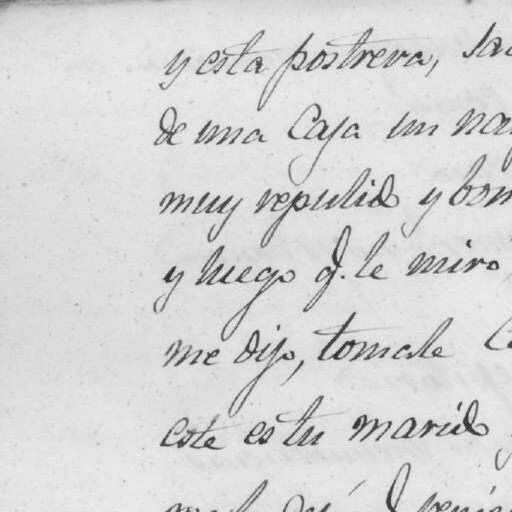 y esta postrera,
de una Caja un
muy repulido y
y luego q.e le miro
me dijo, tomale
este es tu marido